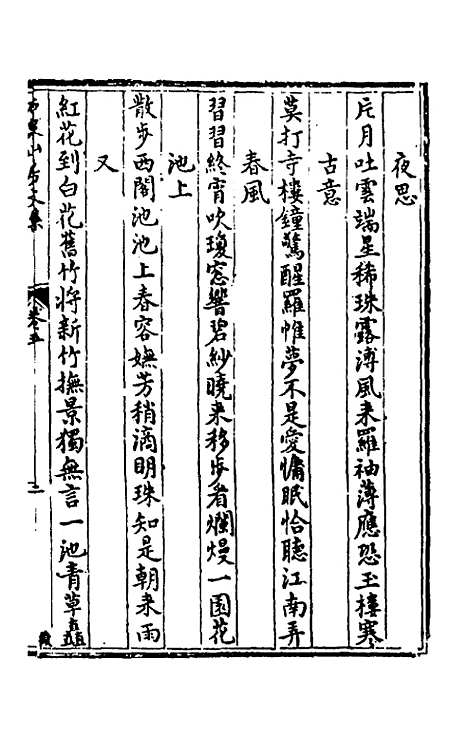 夜思
片月吐雲端星稀珠露溥風来羅袖薄應恐玉樓寒
古意
莫打寺樓鐘驚醒羅帷夢不是愛慵眠恰聽江南弄
春風
習習終宵吹瓊窓響碧紗曉来移步看爛熳一園花
池上
散步西閣池池上春容嫵芳稍滴明珠知是朝来雨
又
紅花到白花舊竹將新竹撫景獨無言一池青草矗
山房文集
卷五